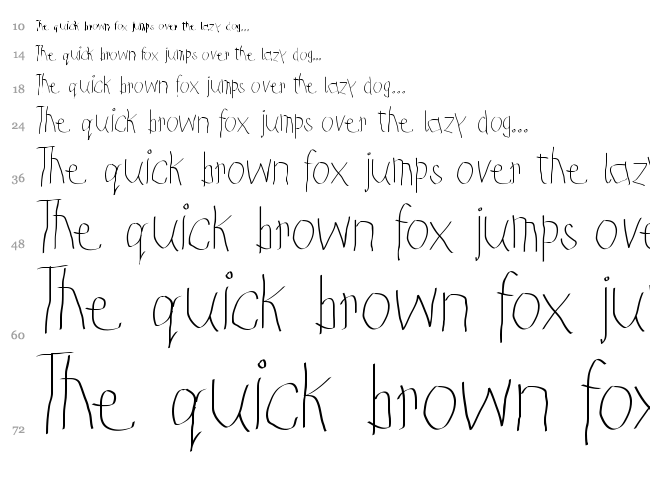 10 The quick brown fox jumps over the lazy dog...
14 The quick brown fox jumps over the lazy dog...
18 The quick brown fox jumps over the lazy dog...
24 The quick brown fox jumps over the lazy dog...
36 The quick brown fox jumps over the lazy
48 The quick brown fox jumps ove
60 The quick brown fox ju
72 The quick brown fox